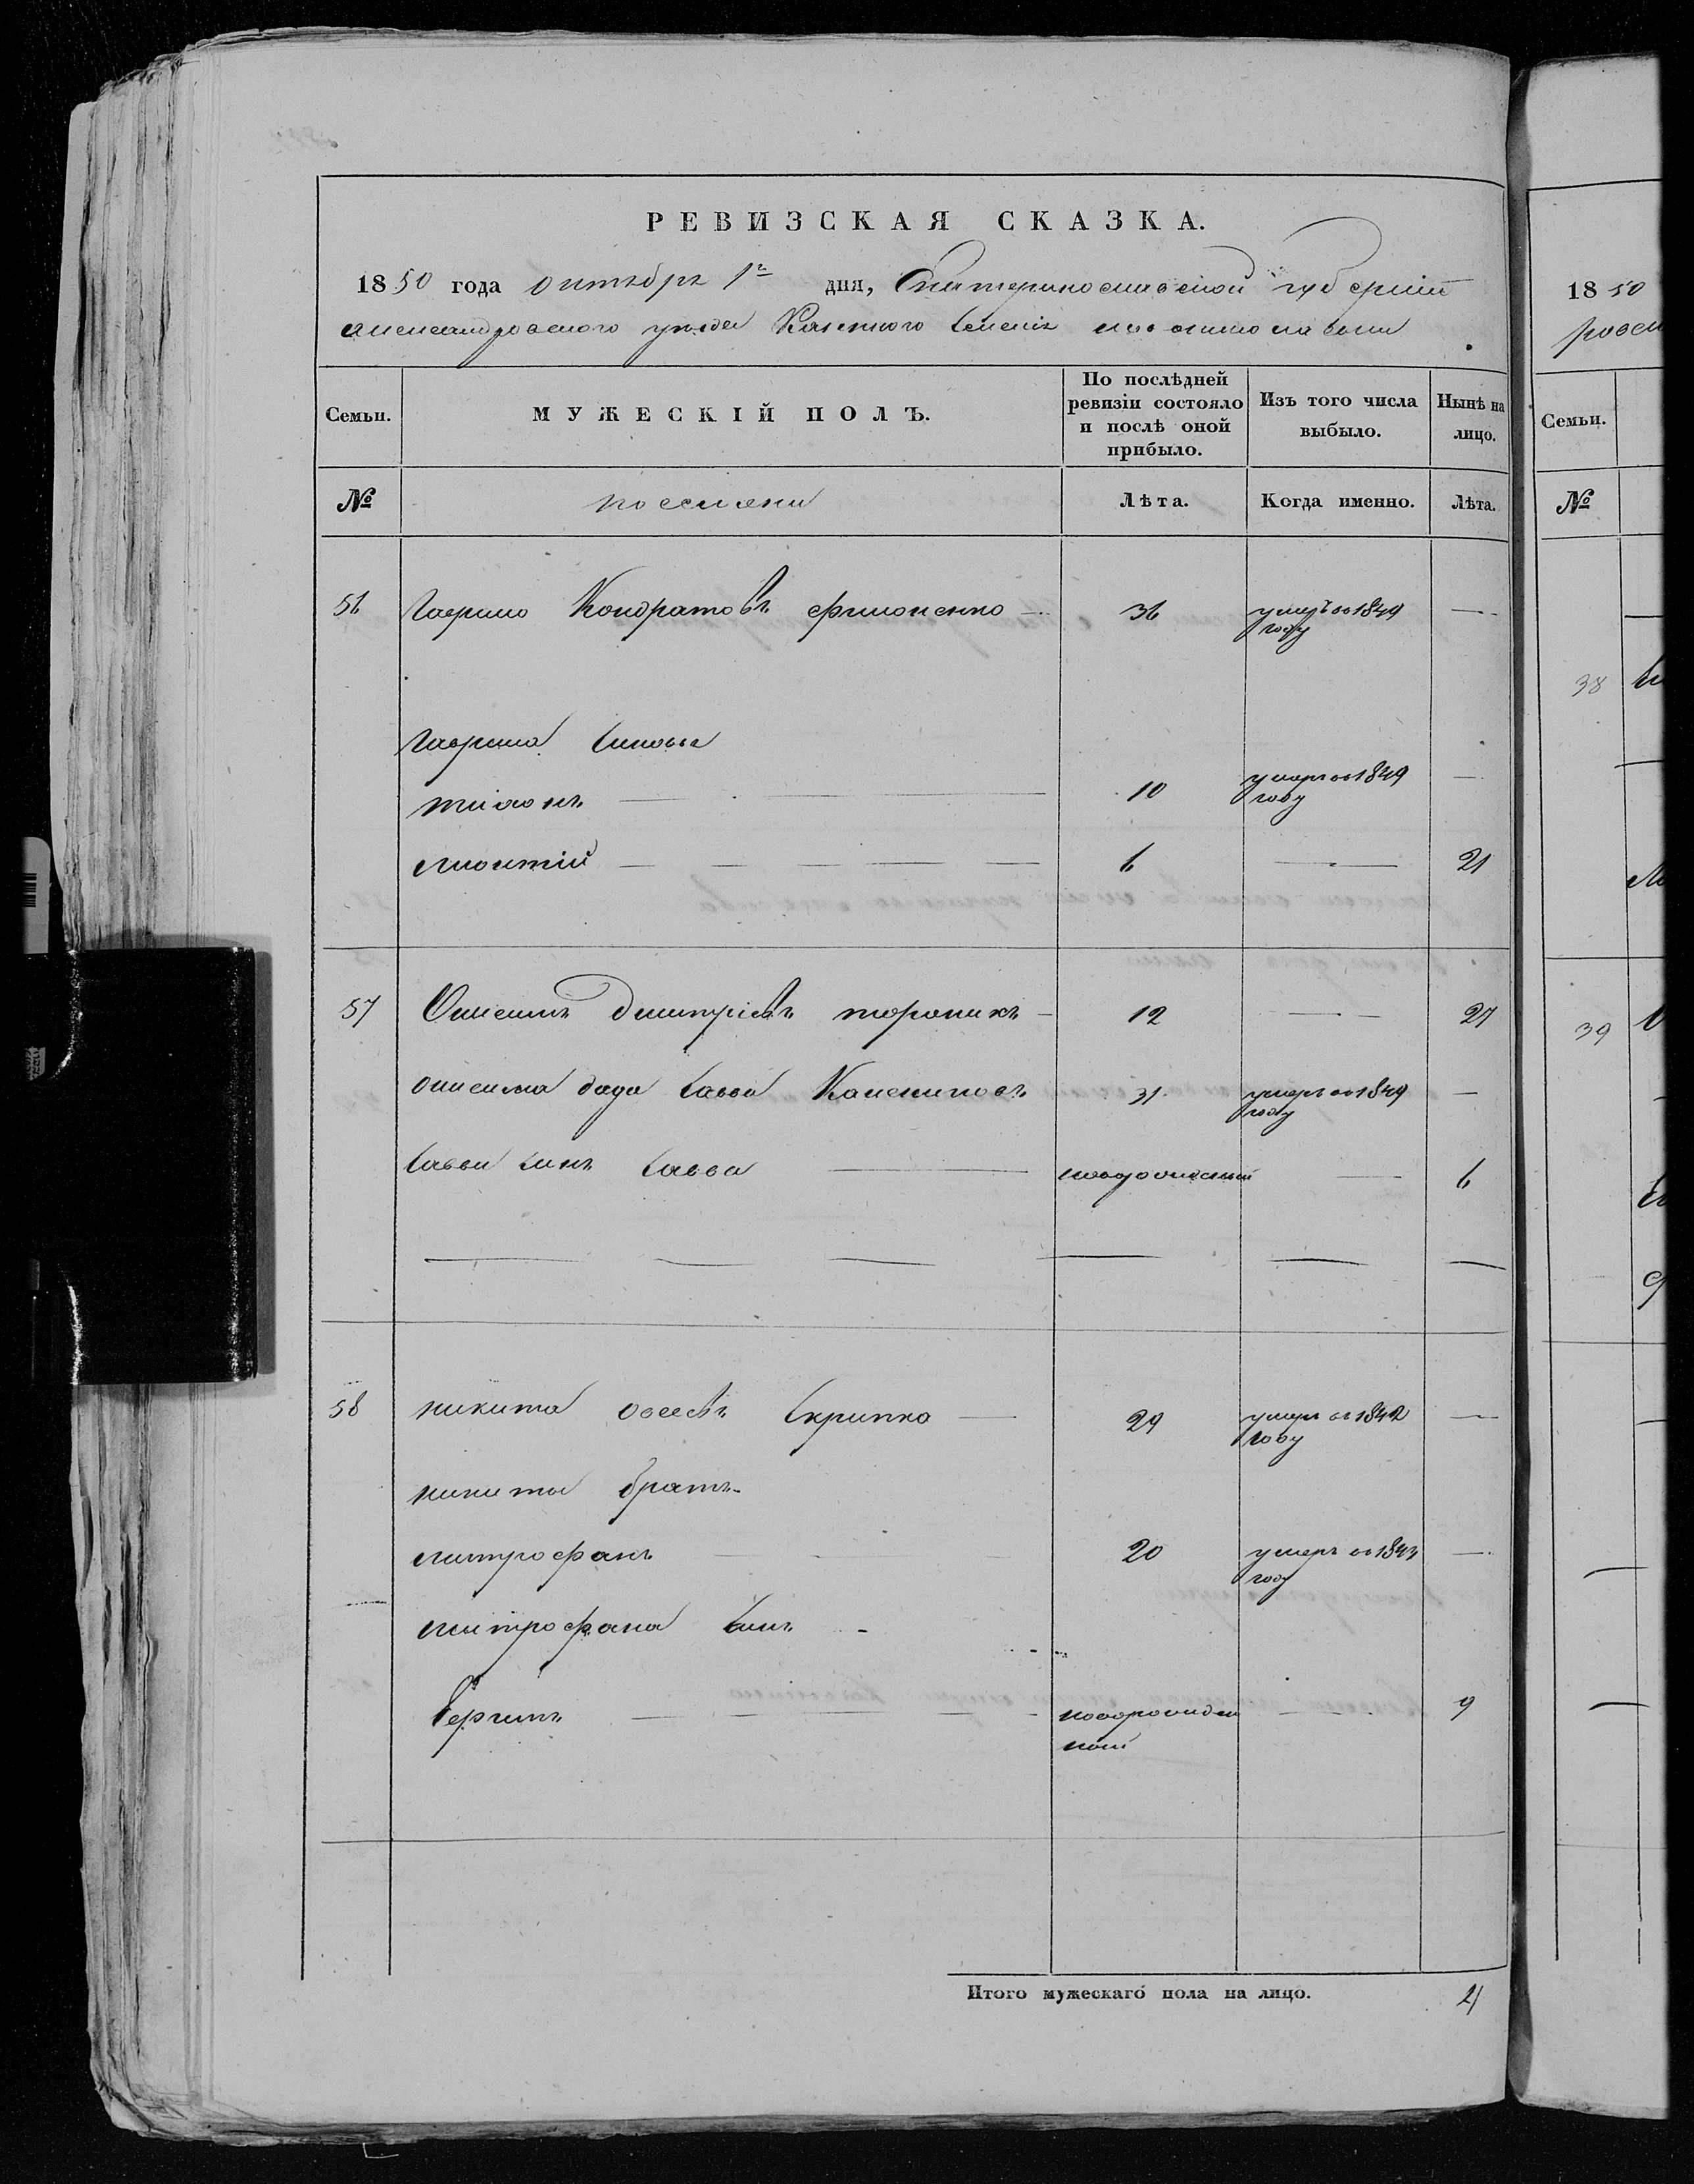 РЕВИЗСКАЯ СКАЗКА.
1850 года октября 1го дня, Екатеринославской губернии
Александровского уезда Казенного селения
Семьи. МУЖЕСКІЙ ПОЛЪ. По послѣдней ревизіи состояло и послѣ оной прибыло. Изъ того числа выбыло. Нынѣ на лицо.
№ поселяни Лѣта. Когда именно. Лѣта.
56 Гаврило Кондратовъ Филоненко 36 умеръ во 1849 году —
Гаврила синовья
тихонъ 10 умеръ во 1849 году —
леонтий 6 — 21
57 Онисимъ дмитріевъ 12 — 27
онисима дядя Савва 31 умеръ во 1849 году —
Саввы синъ Савва — 6
58 никита Скрипка 29 умеръ во 1842 году —
никиты братъ
митрофанъ 20 умеръ во году —
митрофана синъ
Сергий новорожденной — 9
Итого мужескаго пола на лицо. 4
1850
Семьи.
№
38
39